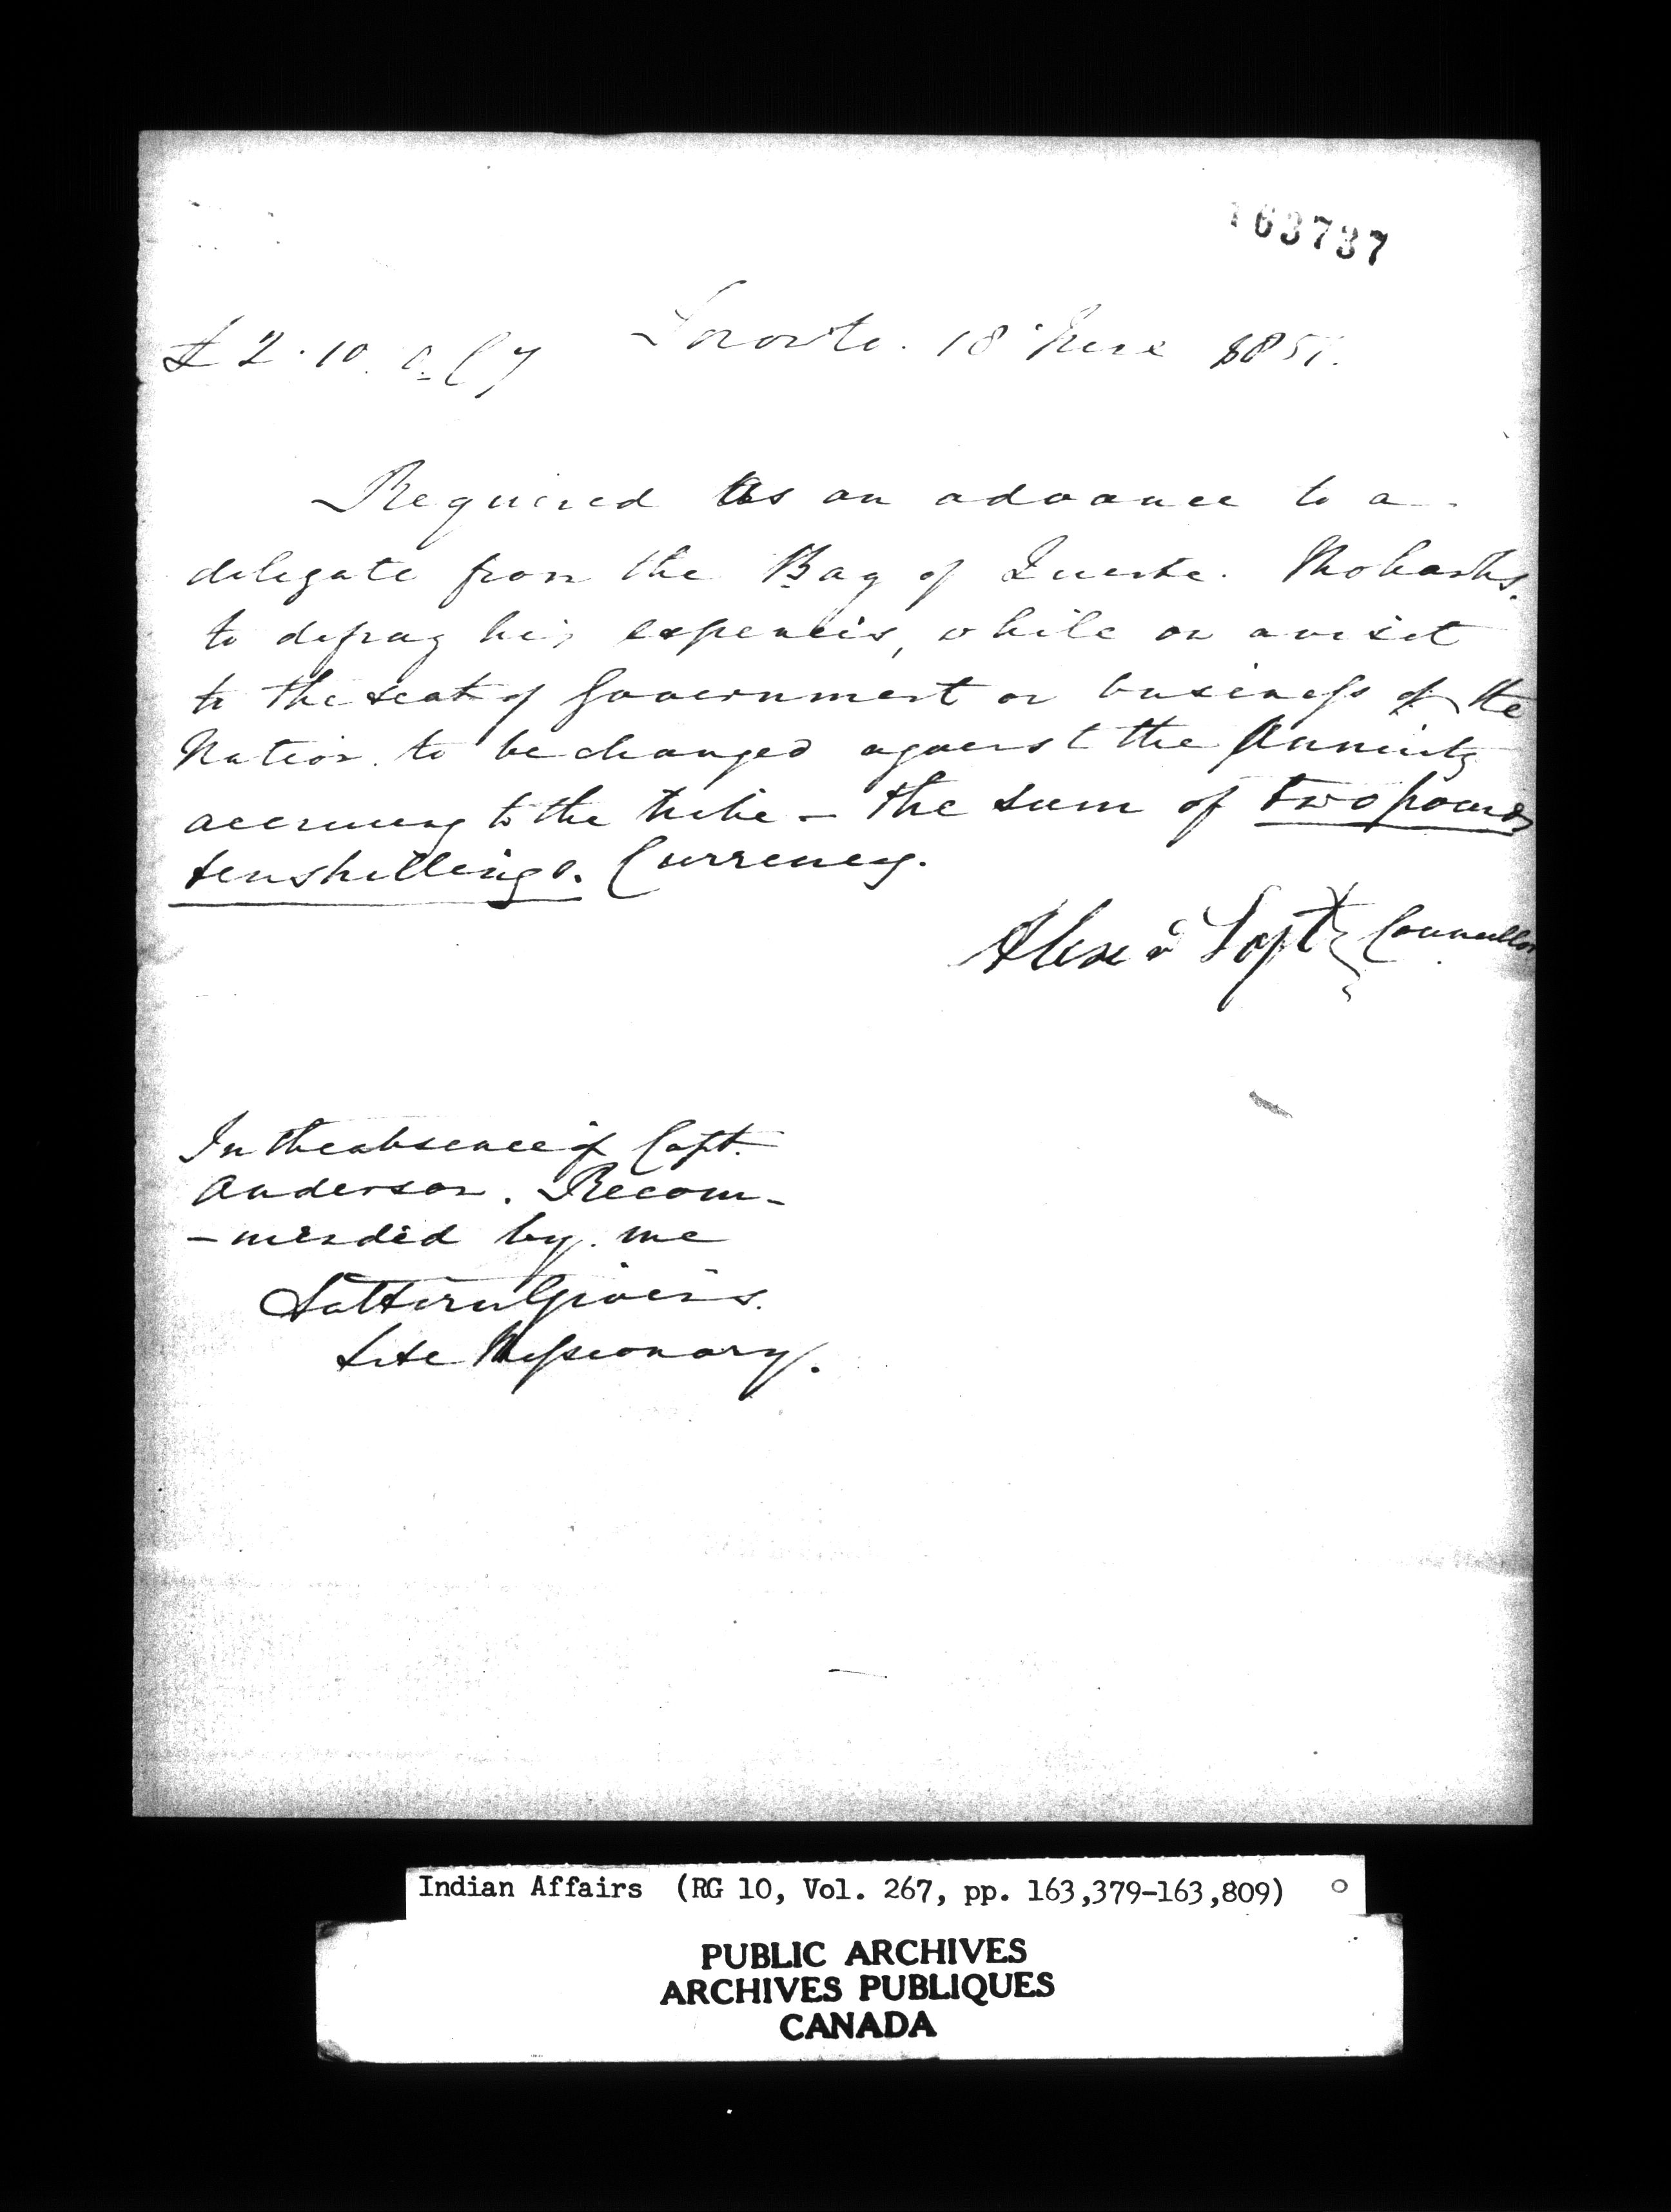 163737
£2.10.0. Cy Toronto. 18 June 1851.
Required As an advance to a
delegate from the Bay of Quinte. Mohawks.
to defray his expences, while on a visit
to the seat of Government on business of the
Nation. to be charged against the Annuity
accruing to the tribe — the sum of two pounds
ten shillings. Currency.
Alexr Loft Councillor
In the absence of Capt.
Anderson. Recom-
-mended by me
Saltern Givins.
late Missionary.
Indian Affairs (RG 10, Vol. 267, pp. 163,379-163,809)
PUBLIC ARCHIVES
ARCHIVES PUBLIQUES
CANADA